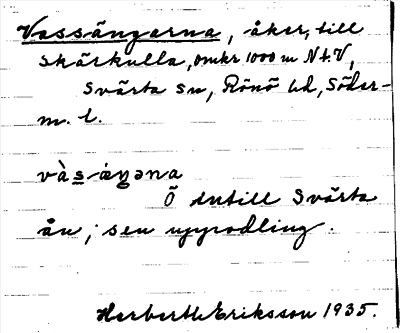 Vassängarna, åker, till
Skärkulla, omkr 1000 m N t. V,
Svärta sn, Rönö hd, Söder-
m. l.
vàs-áŋəna
Ö intill Svärta
ån; sen uppodling.
Herbert Eriksson 1935.